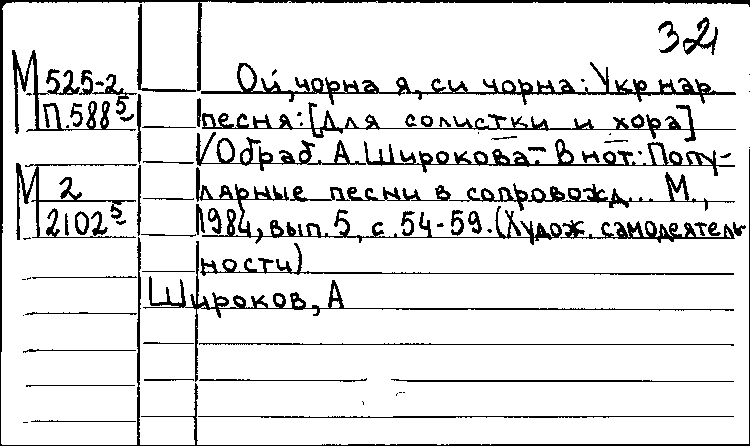 32
М 525-2
П.588⁵
Ой, чорна я, си чорна: Укр нар
песня: [Для солистки и хора]
/Обраб. А. Широкова.- В нот.: Попу-
лярные песни в сопровожд... М.,
1984, вып. 5, с. 54-59. (Худож. самодеятель
ности)
М 2
2102⁵
Широков, А